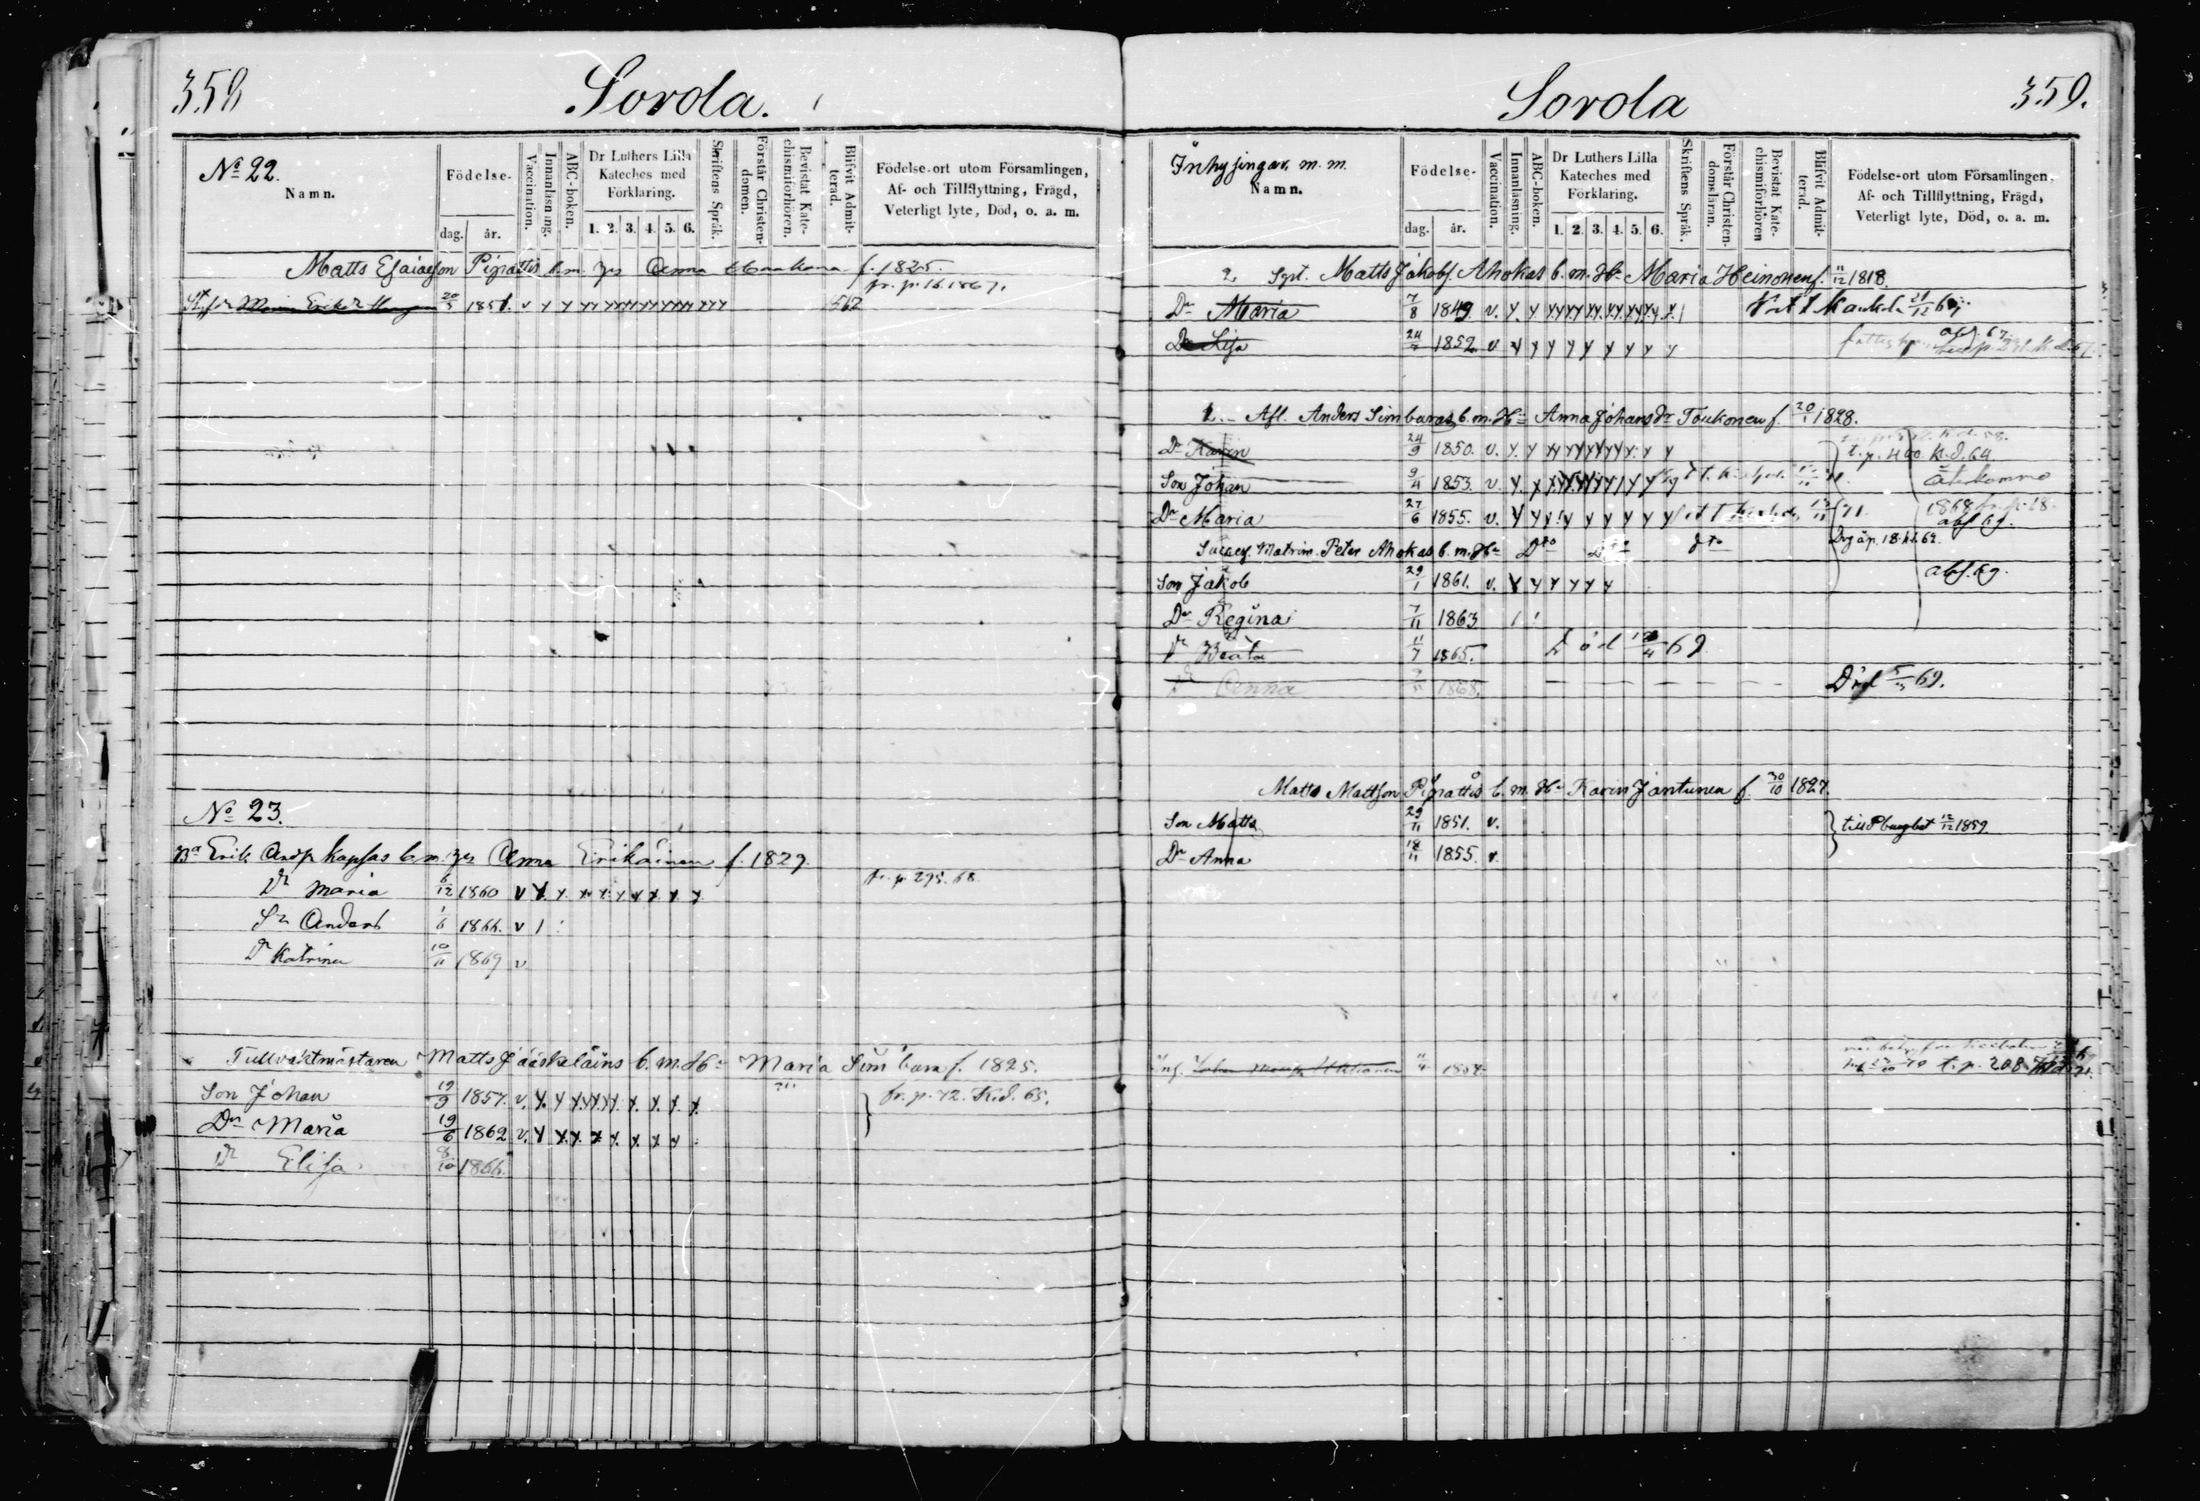 358
Sorola.
No 22.
Namn.
Födelse-
dag. år.
Vaccination.
Innanläsning.
ABC-boken.
Dr Luthers Lilla Kateches med Förklaring.
1. 2. 3. 4. 5. 6.
Skriftens Språk.
Förstår Christen-domen.
Bevistat Kate-chismiförhören.
Blifvit Admit-terad.
Födelse-ort utom Församlingen,
Af- och Tillflyttning, Frägd,
Veterligt lyte, Död, o. a. m.
Matts Esaiaesson Pipattis b. m. Anna f. 1825.
fr. p. 16. 1867.
Maria Eriksdr 20/5 1851. v
No 23.
Erik Andr. Kapsas b. m. Anna Erikäinen f. 1829.
fr. p. 295. 68.
Dr Maria 6/12 1860 v
Sn Anders 1/6 1866. v
Dr Katrina 10/11 1869 v
Tullvaktmästaren Matts Jääskeläins b. m. Ha Maria Simbara f. 1825.
Son Johan 19/9 1857. v. fr. p. 72. K.d. 65.
Dr Maria 19/6 1862 v.
Dr Elisa 8/10 1866.
Sorola
359.
Inhysingar. m. m.
Namn.
Födelse-
dag. år.
Vaccination.
Innanläsning.
ABC-boken.
Dr Luthers Lilla Kateches med Förklaring.
1. 2. 3. 4. 5. 6.
Skriftens Språk.
Förstår Christen-domsläran.
Bevistat Kate-chismiförhören
Blifvit Admit-terad.
Födelse-ort utom Församlingen,
Af- och Tillflyttning, Frägd,
Veterligt lyte, Död, o. a. m.
2. Sytt. Matts Jakobs. Ahokas b. m. Ha Maria Heinonen f. 11/12 1818.
Dr Maria 7/8 1849. v.
Dr Lisa 24/7 1852. v
1. Afl. Anders Simbaras b. m. Ha Anna Johansdr Toukonen f. 20/1 1828.
Dr Karin 24/9 1850. v. t. p. 460 K.d. 64
Son Johan 9/4 1853. v. återkommo
Dr Maria 27/6 1855. v. 1868 fr. p. 18.
abs. 69.
Matrim. Peter Ahokas b. m. Ha Dto Dto Dto
Son Jakob 29/1 1861. v. abs. 69.
Dr Regina 7/11 1863
Dr Beata 11/7 1865. Död 69
Anna 1868. Död 69.
Matts Mattsson Pipattis b. m. Ha Karin Jantunen f. 30/10 1827.
Son Matts 29/11 1851. v. till Pburgbet 12/12 1859
Dr Anna 18/11 1855. v.
t. p. 208